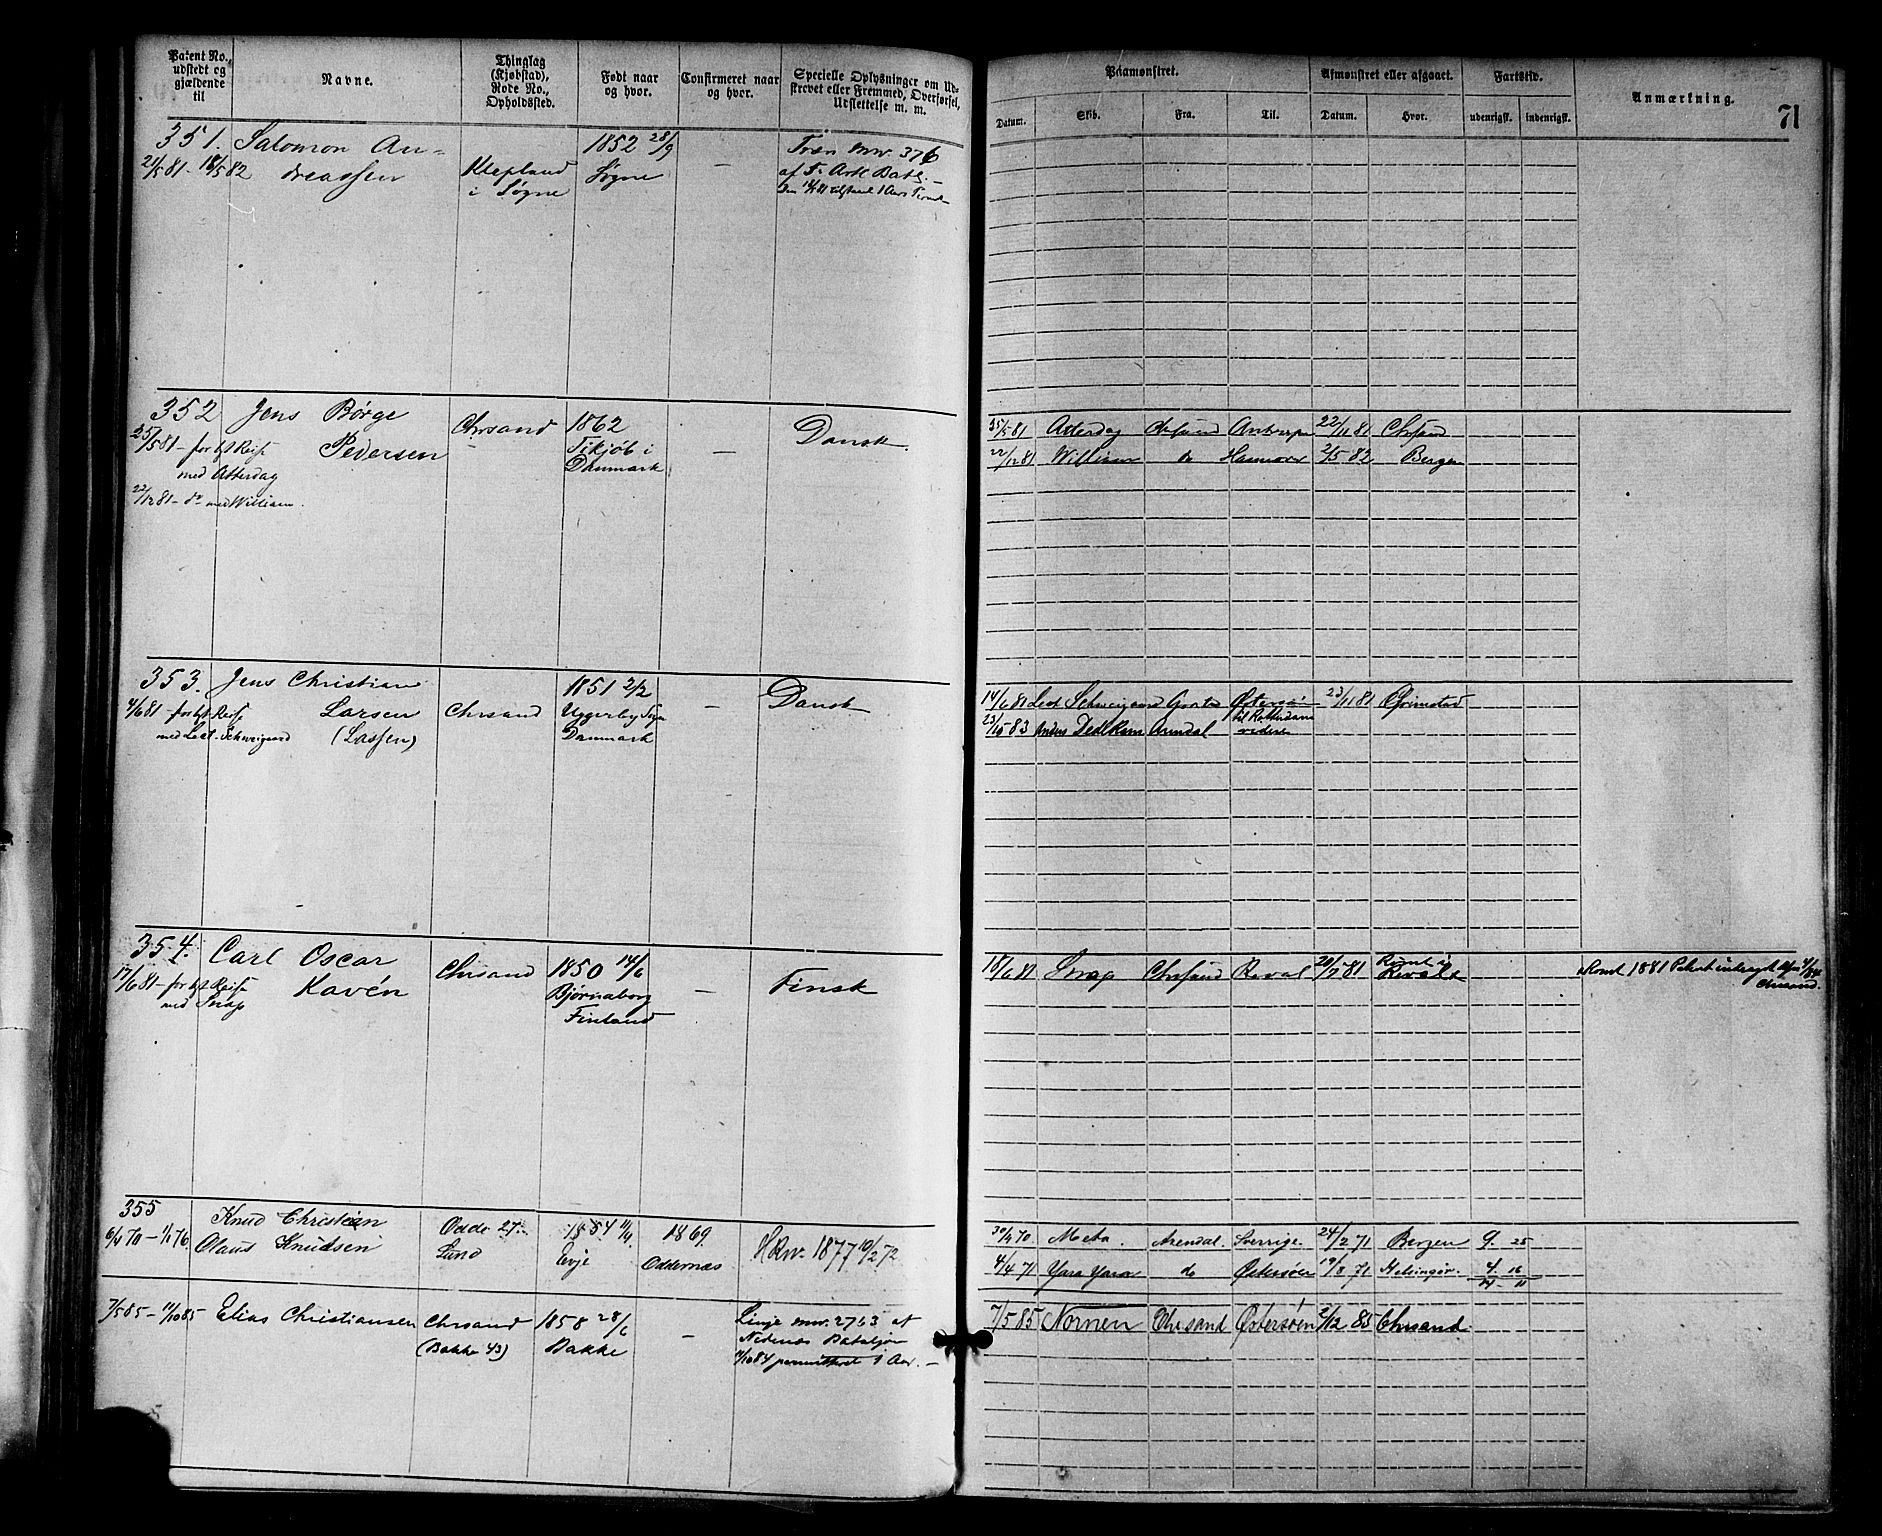 Patent No., udstedt og gjældende til
Navne.
Thinglag (Kjøbstad), Rode No., Opholdssted.
Født naar og hvor.
Confirmeret naar og hvor.
Specielle Oplysninger om Udskrevet eller Fremmed, Overførsel, Udslettelse m. m.
Paamønstret.
Afmønstret eller afgaaet.
Fartstid.
Anmærkning.
71
Datum.
Skib.
Fra.
Til.
Datum.
Hvor.
udenrigsk.
indenrigsk.
351. Salomon An-
21/5 81 - 18/5 82 dreassen
Klepland
i Søgne
1852 28/9
Søgne
—
Træn nr. 376
af 5. Artl Batl. —
352 Jens Børge
Pedersen
25/5 81 - for et Reise
med Atterdag
22/12 81 - do med William.
Chrsand
1862
Tikjøb i
Danmark
—
Dansk
25/5 81 Atterdag Chrsand Antwerpn 22/11 81 Chrsand
22/12 81 William do Hannover 2/5 82 Bergen
353. Jens Christian
Larsen
(Lassen)
4/6 81 - for et Reise
med Leot. Schweigaard
Chrsand
1851 2/2
Uggerby Sogn
Danmark
—
Dansk
14/6 81 Leot Schweigaard Østersøn 23/11 81 Grimstad
til Rotterdam
23/10 83 Anders Dedekam Arendal videre
354. Carl Oscar
Kavén
17/6 81 - for et Reise
med Snap
Chrsand
1850 14/6
Bjørneborg
Finland
—
Finsk
18/6 81 Snap Chrsand Reval 20/7 81 Rømt i
Reval
Rømt 1881 Patent
Chrsand.
355
Knud Christian
6/4 70 - 1/1 76. Olaus Knudsen
Odde 27.
Lund
1854 11/4
Evje
1869
Oddernæs
HRnr. 1877 10/2 72
30/4 70 Meta. Arendal. Sverrige. 24/2 71 Bergen 9. 25
4/4 71 Yara Yara do Østersøen 19/8 71 Helsingør. 4. 16
14 - 11
7/5 85 - 14/10 85 Elias Christiansen
Chrsand
(Bakke 43)
1858 28/6
Bakke
—
Linje nr. 2763 af
Nedenæs Bataljon
11/10 84 permitteret i 1 Aar. —
7/5 85 Nornen Chrsand Østersøen 2/12 85 Chrsand.